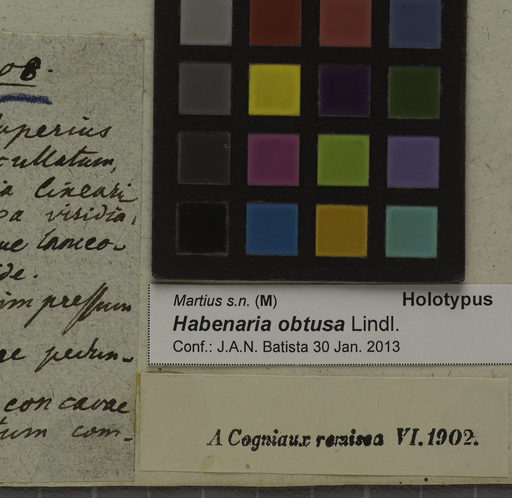 08.
superius
cullatum,
lineari
viridia,
lanceo-
pressum
pedun-
concavae
com-
Martius s.n. (M) Holotypus
Habenaria obtusa Lindl.
Conf.: J.A.N. Batista 30 Jan. 2013
A Cogniaux remisea VI.1902.